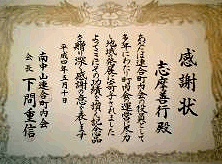 感謝状
志摩善行殿
あなたは連合町内会の役員として
多年にわたり町内会運営に尽力
し地域発展に寄与されました
よってここにその功績を讃え記念品
を贈り深く感謝の意を表します
平成四年五月十日
南中山連合町内会
会長 下間重信